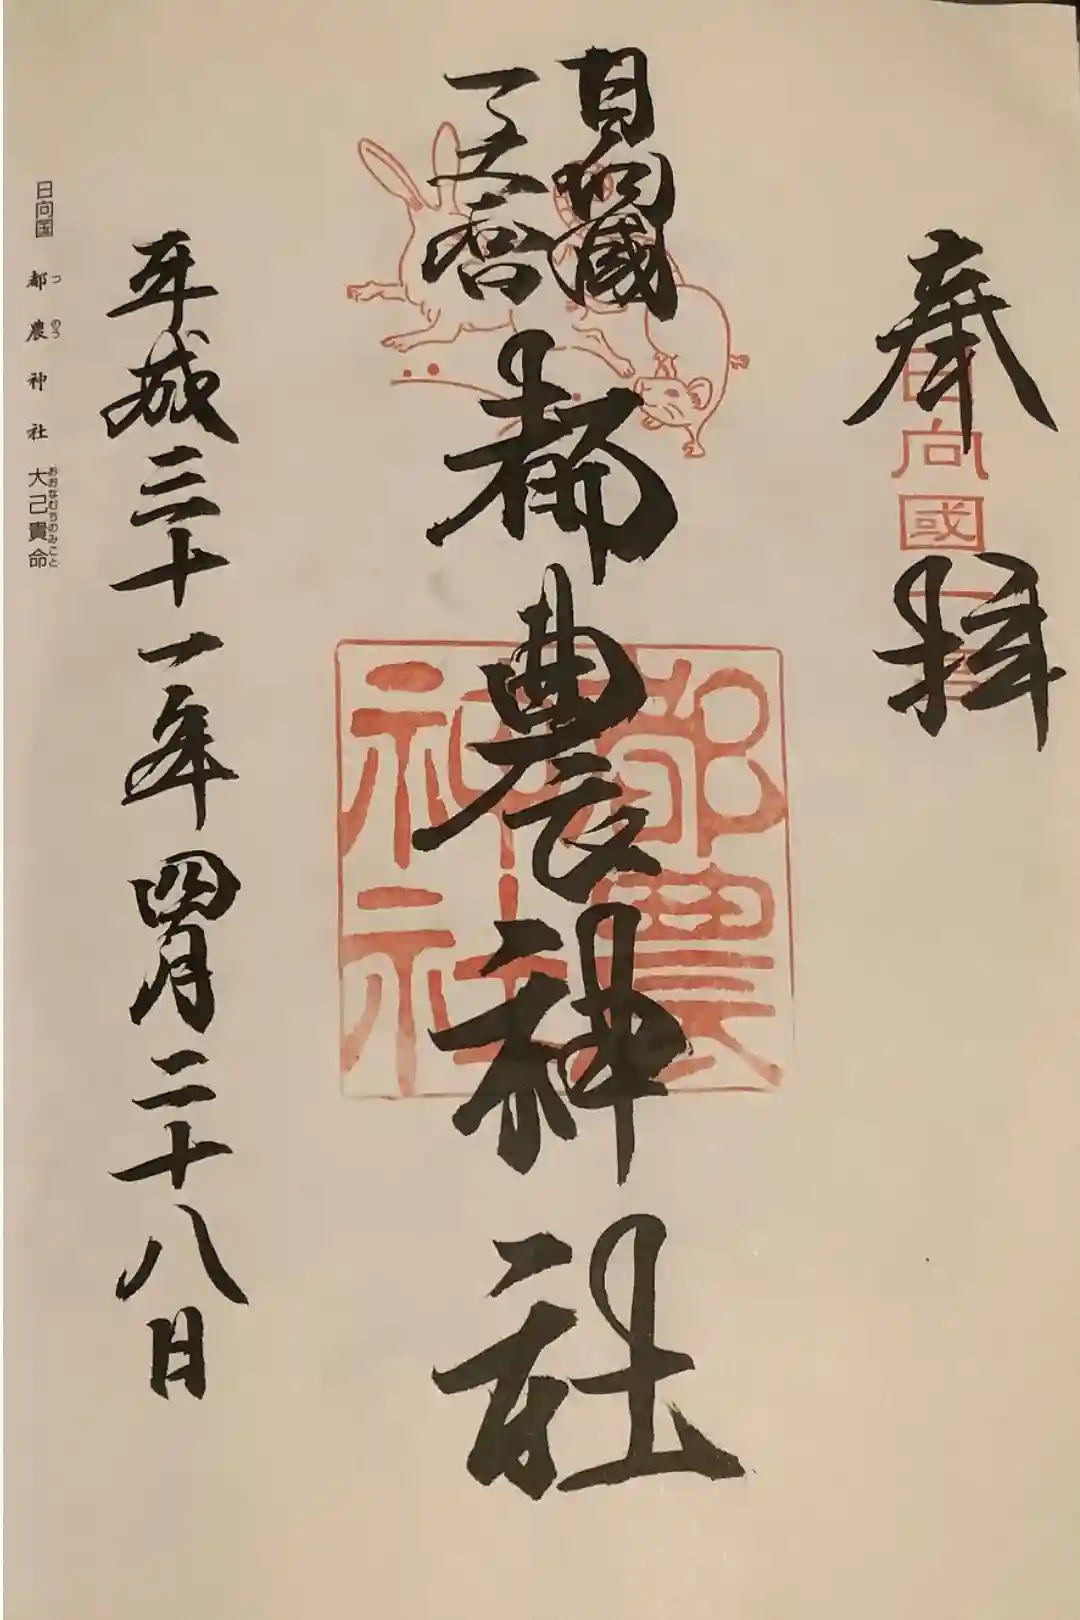 奉拝
日向國一宮
日向國
一之宮
都農神社
都農
神社
平成三十一年四月二十八日
日向国 都農神社 大己貴命
つ のう おおなむちのみこと